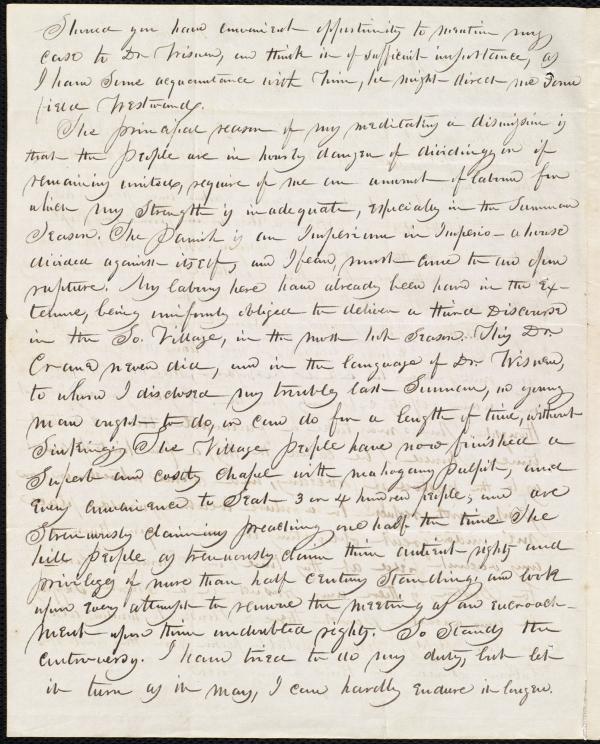 Should you have convenient opportunity to mention my
case to Dr Wisner, and think it of sufficient importance, as
I have some acquaintance with him, he might direct me some
field Westward.
The principal reason of my meditating a dismission is
that the People are in hourly danger of dividing; or if
remaining united, require of me an amount of labour for
which my strength is inadequate, especially in the Summer
Season. The Parish is an Imperium in Imperio - a house
divided against itself, and I fear, must come to an open
rupture. My labors here have already been hard in the ex-
treme, being uniformly obliged to deliver a third Discourse
in the So. Village, in the most hot Season. This Dr.
Crane never did, and in the language of Dr. Wisner,
to whom I disclosed my trouble last Summer, no young
man ought to do, or can do for a length of time, without
Sinking. The Village People have now finished a
Superb and costly Chapel with mahogany pulpit, and
every convenience to Seat 3 or 4 hundred people; and are
Strenuously claiming preaching one half the time The
hill People as strenuously claim their antient rights and
privileges of more than half Century Standing, and look
upon every attempt to remove the meeting as an encroach-
ment upon their undoubted rights. So Stands the
controversy. I have tried to do my duty, but let
it turn as it may, I can hardly endure it longer.